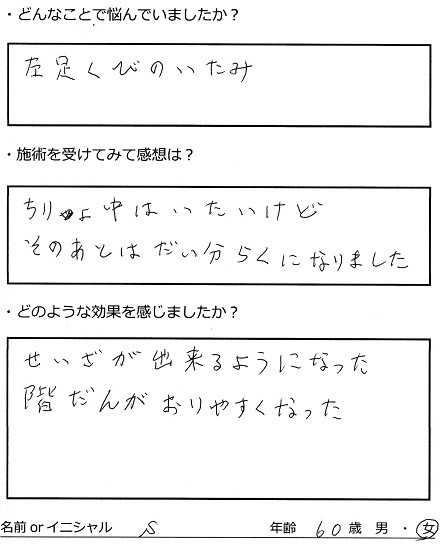 ・どんなことで悩んでいましたか？
左足くびのいたみ
・施術を受けてみて感想は？
ちりょ中はいたいけど
そのあとはだい分らくになりました
・どのような効果を感じましたか？
せいざが出来るようになった
階だんがおりやすくなった
名前orイニシャル S 年齢 60歳 男 ・ 女